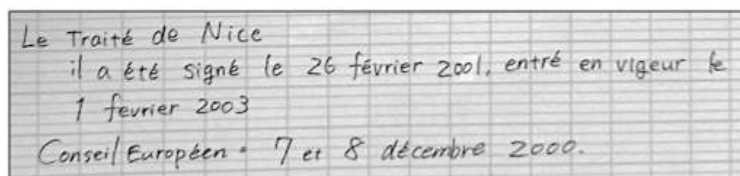 Le Traité de Nice
il a été signé le 26 février 2001, entré en vigueur le
1 fevrier 2003
Conseil Européen • 7 et 8 décembre 2000.